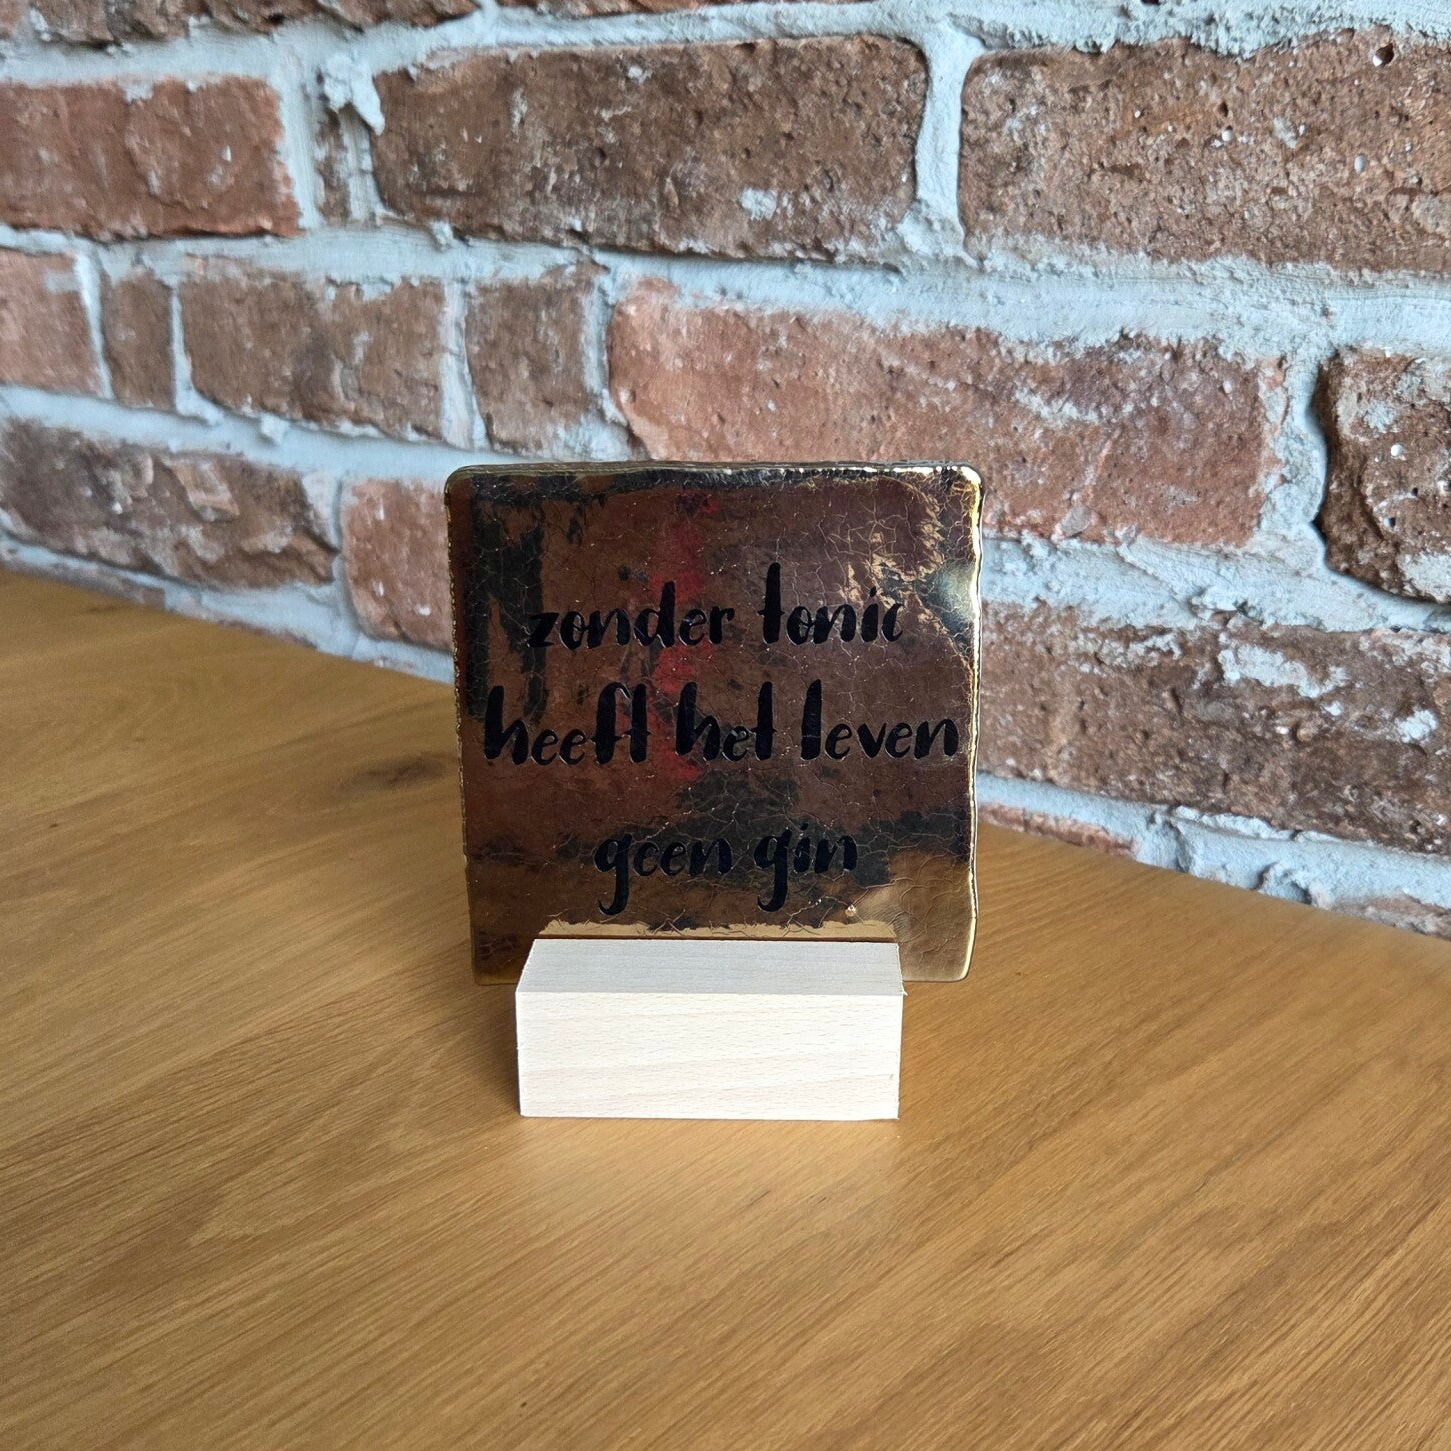 zonder tonic
heeft het leven
geen gin